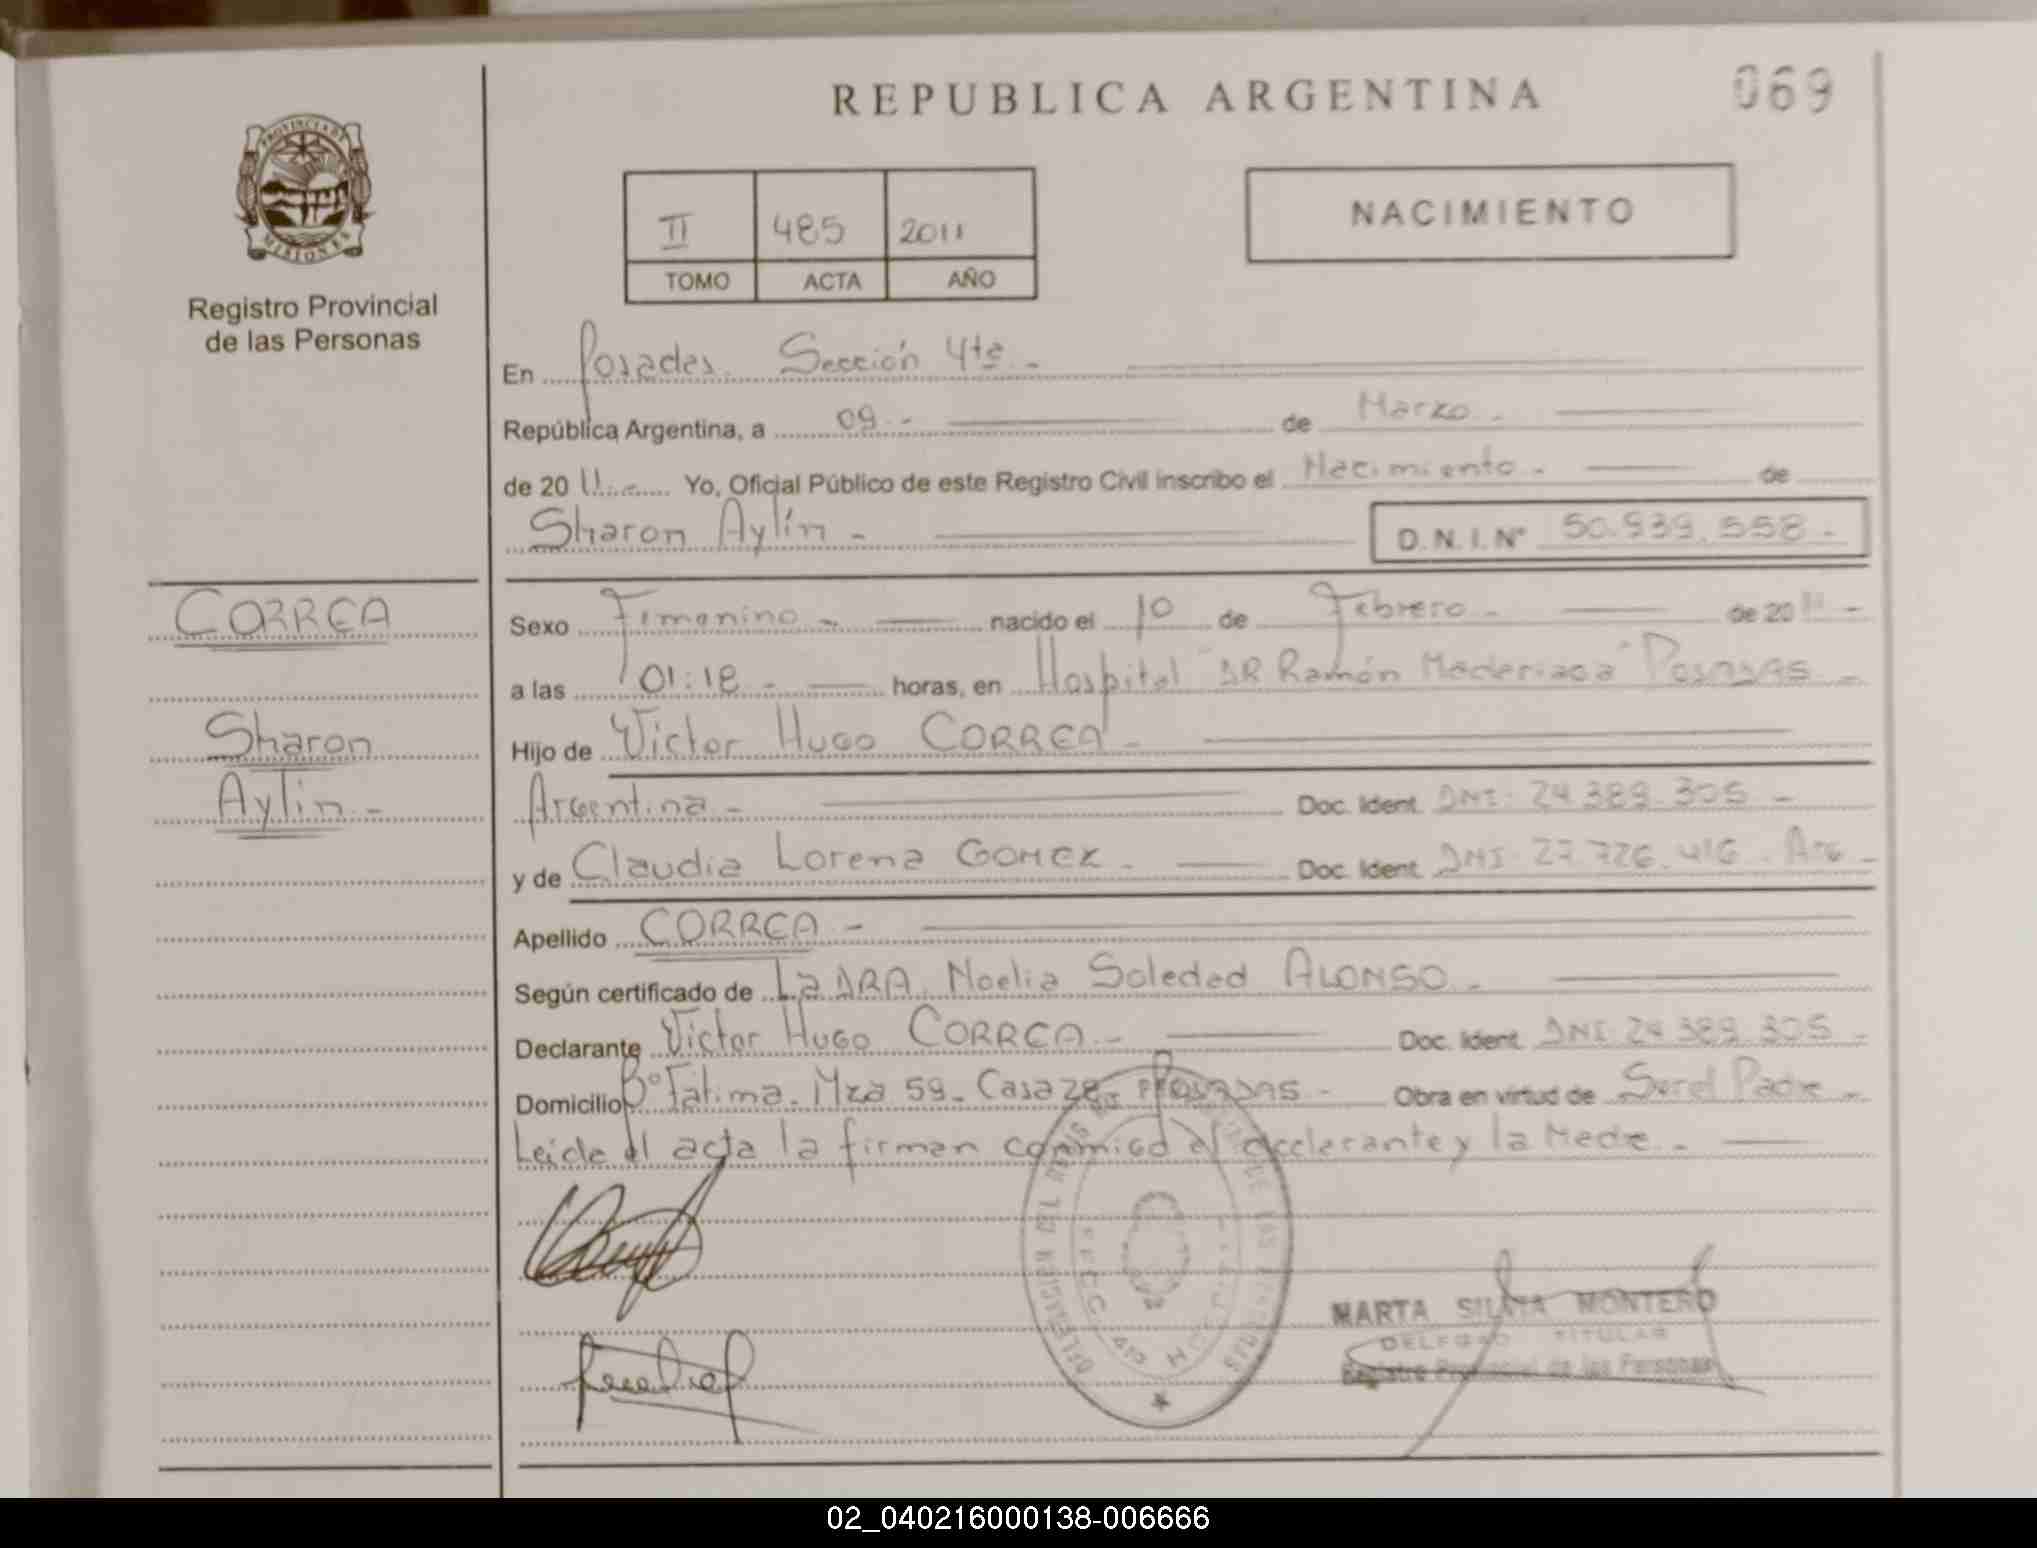 REPUBLICA ARGENTINA
069
PROVINCIA DE
MISIONES
Registro Provincial
de las Personas
II 485 2011
TOMO ACTA AÑO
NACIMIENTO
En Posadas. Sección 4ta.-
República Argentina, a 09.- de Marzo.-
de 20 11.- Yo, Oficial Público de este Registro Civil inscribo el Nacimiento.- de
Sharon Aylín.- D.N.I.Nº 50.939.558.-
CORREA
Sharon
Aylín.-
Sexo Femenino.- nacido el 10 de Febrero.- de 20 11.-
a las 01:18.- horas, en Hospital "DR Ramón Madariaga" POSADAS.-
Hijo de Victor HUGO CORREA.-
Argentina.- Doc. Ident. DNI. 24.389.305.-
y de Claudia Lorena GOMEZ.- Doc. Ident. DNI. 27.726.416. ARG.-
Apellido CORREA.-
Según certificado de La DRA. Noelia Soledad ALONSO.-
Declarante Victor HUGO CORREA.- Doc. Ident. DNI 24.389.305.-
Domicilio Bº Fátima. Mza 59. Casa POSADAS.- Obra en virtud de Ser el Padre.-
Leida el acta la firman conmigo el declarante y la Madre.-
MARTA SILVIA MONTERO
TITULAR
Registro Provincial de las Personas
02_040216000138-006666